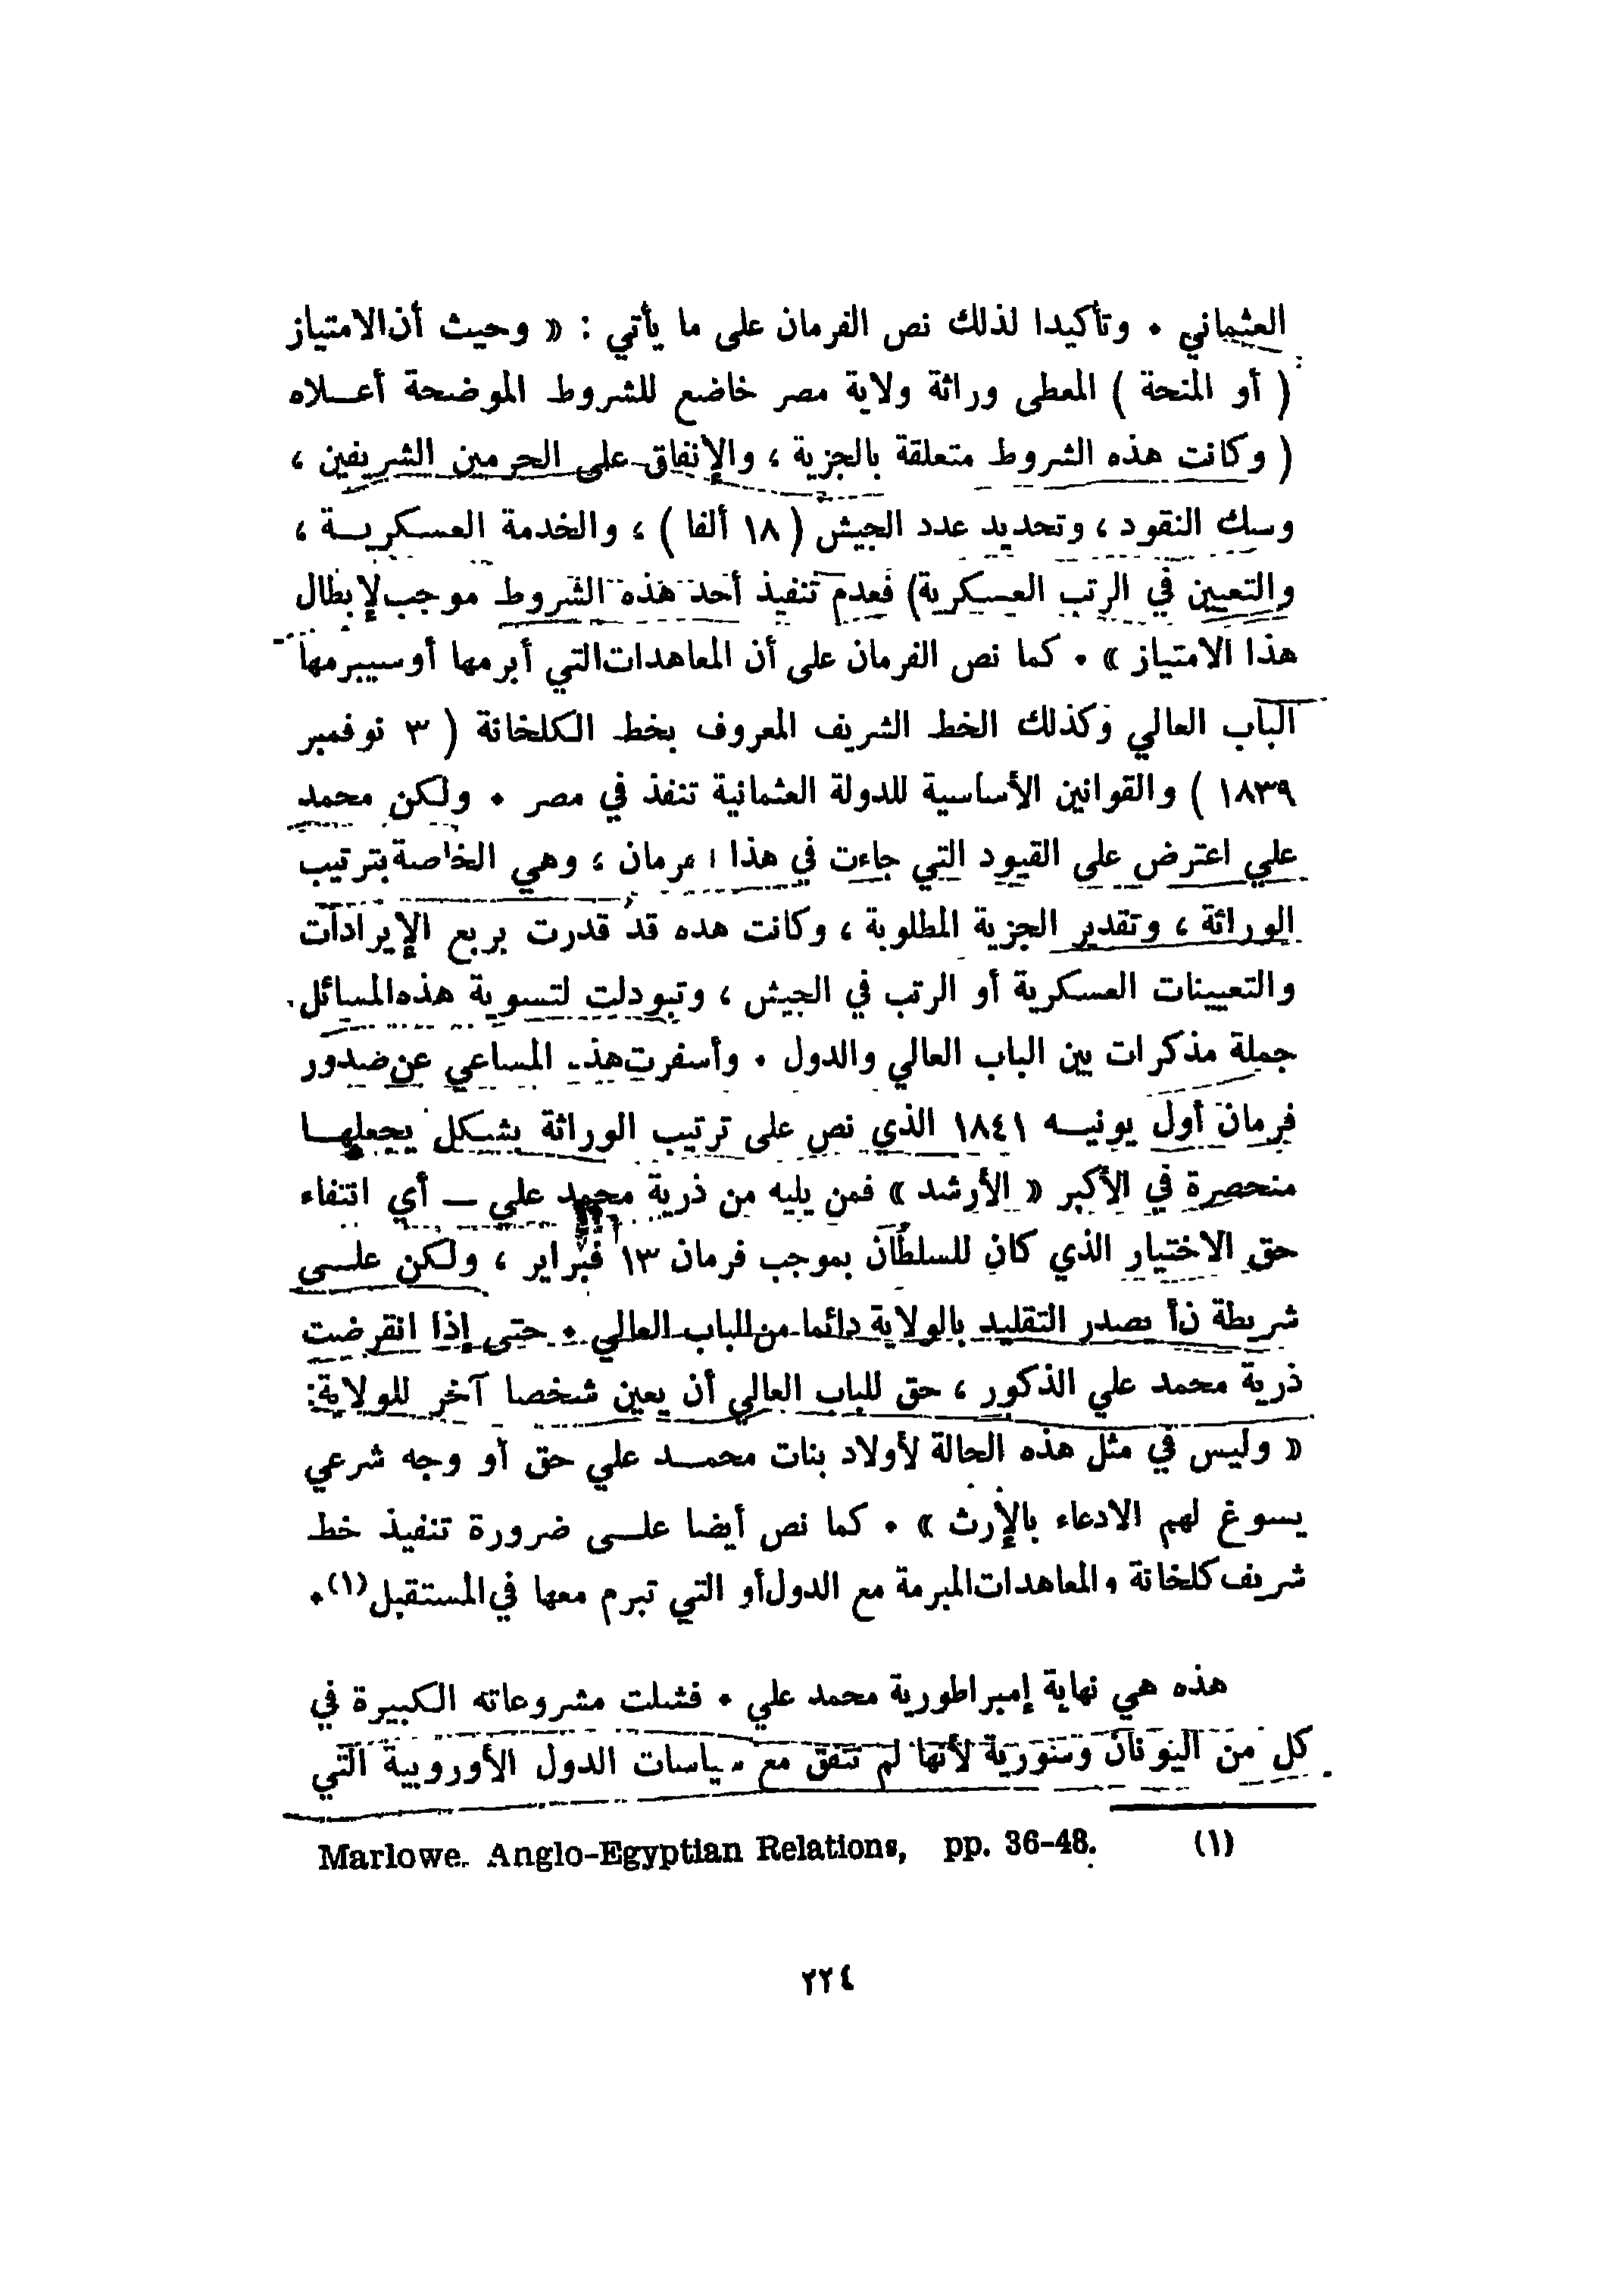 العثماني . وتأكيدا لذلك نص الفرمان على ما يأتي : « وحيث أن الامتياز
( أو المنحة ) المعطى وراثة ولاية مصر خاضع للشروط الموضحة أعلاه
( وكانت هذه الشروط متعلقة بالجزية ، والإنفاق على الحرمين الشريفين ،
وسك النقود ، وتحديد عدد الجيش ( ١٨ ألفا ) ، والخدمة العسكرية ،
والتعيين في الرتب العسكرية) فعدم تنفيذ أحد هذه الشروط موجب لإبطال
هذا الامتياز » . كما نص الفرمان على أن المعاهدات التي أبرمها أو سيبرمها
الباب العالي وكذلك الخط الشريف المعروف بخط الكلخانة ( ٣ نوفمبر
١٨٣٩ ) والقوانين الأساسية للدولة العثمانية تنفذ في مصر . ولكن محمد
علي اعترض على القيود التي جاءت في هذا ، وهي الخاصة بترتيب
الوراثة ، وتقدير الجزية المطلوبة ، وكانت هده قد قدرت بربع الإيرادات
والتعيينات العسكرية أو الرتب في الجيش ، وتبودلت لتسوية هذه المسائل
جملة مذكرات بين الباب العالي والدول . وأسفرت المساعي عن صدور
فرمان أول يونيه ١٨٤١ الذي نص على ترتيب الوراثة بشكل يجعلها
منحصرة في الأكبر « الأرشد » فمن يليه من ذرية محمد علي — أي انتفاء
حق الاختيار الذي كان للسلطان بموجب فرمان ١٣ فبراير ، ولكن على
شريطة ذأ يصدر التقليد بالولاية دائما من للباب العالي . حتى إذا انقرضت
ذرية محمد علي الذكور ، حق للباب العالي أن يعين شخصا آخر للولاية:
« وليس في مثل هذه الحالة لأولاد بنات محمد علي حق أو وجه شرعي
يسوغ لهم الادعاء بالإرث » . كما نص أيضا على ضرورة تنفيذ خط
شريف كلخانة والمعاهدات المبرمة مع الدول أو التي تبرم معها في المستقبل(١).
هذه هي نهاية إمبراطورية محمد علي . فشلت مشروعاته الكبيرة في
كل من اليونان وسورية لأنها لم تتفق مع الدول الأوروبية التي
Marlowe. Anglo-Egyptian Relations, pp. 36-48. (١)
٢٢٤